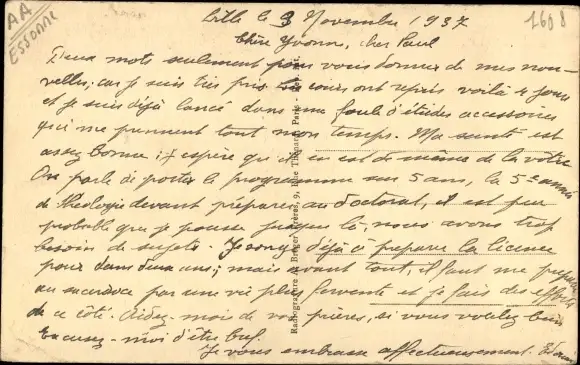 AA
Essonne
1608
Lille le 3 Novembre 1937
Chère Yvonne, cher Paul
Deux mots seulement pour vous donner de mes nou-
velles, car je suis très pris. Les cours ont repris voilà 4 jours
et je suis déjà lancé dans une foule d'études accessoires
qui me prennent tout mon temps. Ma santé est
assez bonne ; j'espère qu'il en est de même de la vôtre
On parle de porter le programme sur 5 ans, la 5e année
de théologie devant préparer au doctorat, il est peu
probable que je pousse jusque là, nous avons trop
besoin de sujets. Je songe déjà à préparer la licence
pour dans deux ans ; mais avant tout, il faut me préparer
au sacerdoce par une vie plus fervente et je fais des efforts
de ce côté. Aidez-moi de vos prières, si vous voulez bien
Excusez-moi d'être bref.
Je vous embrasse affectueusement.
Radiogravure Berger Frères, 9, Rue Thénard, Paris